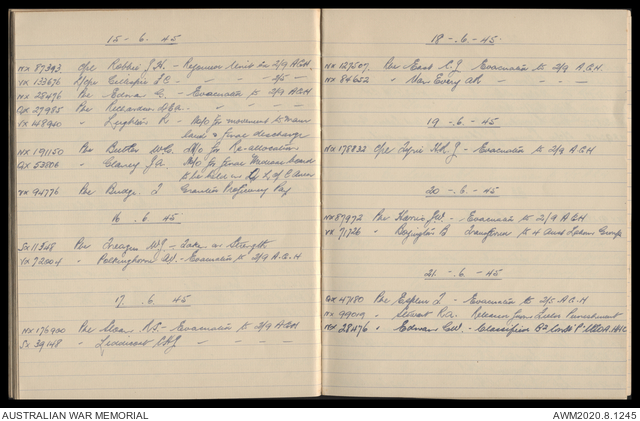 15 - 6. 45
NX 87393 Cpl Robbie J.H. - Rejoin Unit ex 2/9 A.G.H.
VX 133676 L/Cpl Gillespie J.C. - - 2/5 -
NX 28476 Pte Edwards C. - Evacuation to 2/9 AGH
QX 27985 Pte Richardson
VX 148940 " Leighton R - M/O for movement to main
land & final discharge
NX 191150 Pte Butler W.C. M/O for Re-allocation
QX 53806 " Clancy J.A. M/O for final Medical board
to be held in L of C area
VX 94776 Pte Budge J. Granted Proficiency Pay
16. 6. 45
SX 11348 Pte Treagus W.J. - Taken on Strength
VX 72004 " Polkinghorne A.V. - Evacuation to 2/9 A.G.H
17. 6. 45
NX 176900 Pte Sloan R.S. - Evacuation to 2/9 AGH
SX 39148 "
18 -. 6 -. 45.
NX 127507 Pte East C.J. Evacuation to 2/9 A.G.H.
NX 84652 "
19 -. 6 - 45
NX 178832 Cpl H.L.J. - Evacuation to 2/9 A.G.H
20 -. 6 - 45
NX 87972 Pte Harris J.W. - Evacuation to 2/9 A.G.H
VX 71726 " Bovington B Transferred to 4 Aust Labour Group
21. -. 6 - 45
QX 47180 Pte J. - Evacuation to 2/5 A.G.H
NX 99019 " Stewart R.A. Released from Field Punishment
NX 28476 " Edwards C.W. - Classified B2
AUSTRALIAN WAR MEMORIAL
AWM2020.8.1245